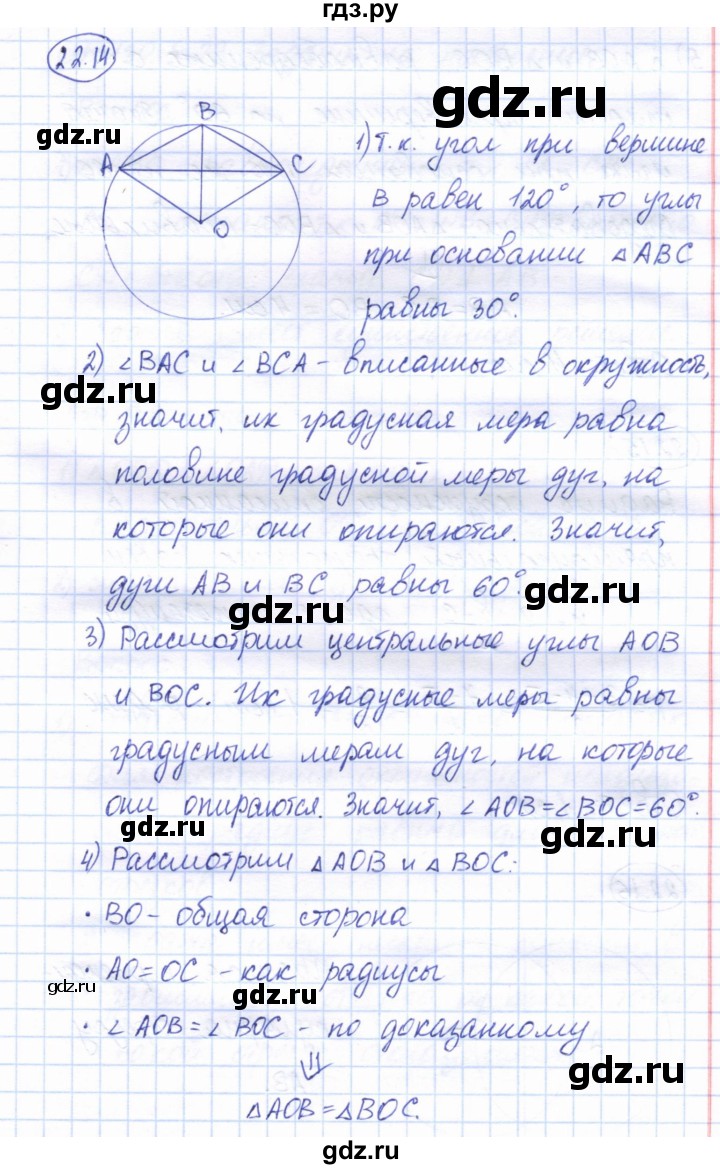 гдз.ру
22.14
gdz.ru
gdz.ru
B
A
C
O
1) т.к. угол при вершине
В равен 120°, то углы
gdz.ru
при основании △ABC
равны 30°.
2) ∠BAC и ∠BCA - вписанные в окружность,
gdz.ru
gdz.ru
значит, их градусная мера равна
половине градусной меры дуг, на
которые они опираются. Значит,
дуги AB и BC равны 60°.
gdz.ru
gdz.ru
3) Рассмотрим центральные углы AOB
и BOC. Их градусные меры равны
градусным мерам дуг, на которые
они опираются. Значит, ∠AOB=∠BOC=60°.
gdz.ru
gdz.ru
4) Рассмотрим △AOB и △BOC:
• BO - общая сторона
• AO=OC - как радиусы
gdz.ru
gdz.ru
• ∠AOB=∠BOC - по доказанному
⇓
△AOB=△BOC.
gdz.ru